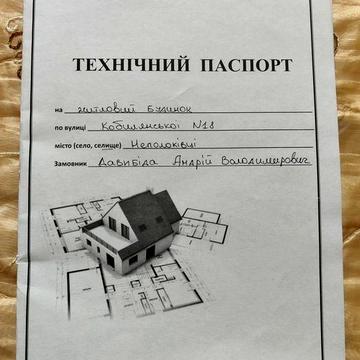 ТЕХНІЧНИЙ ПАСПОРТ
на житловий будинок
по вулиці Кобилянської N18
місто (село, селище) Неполоківці
Замовник Давибіда Андрій Володимирович